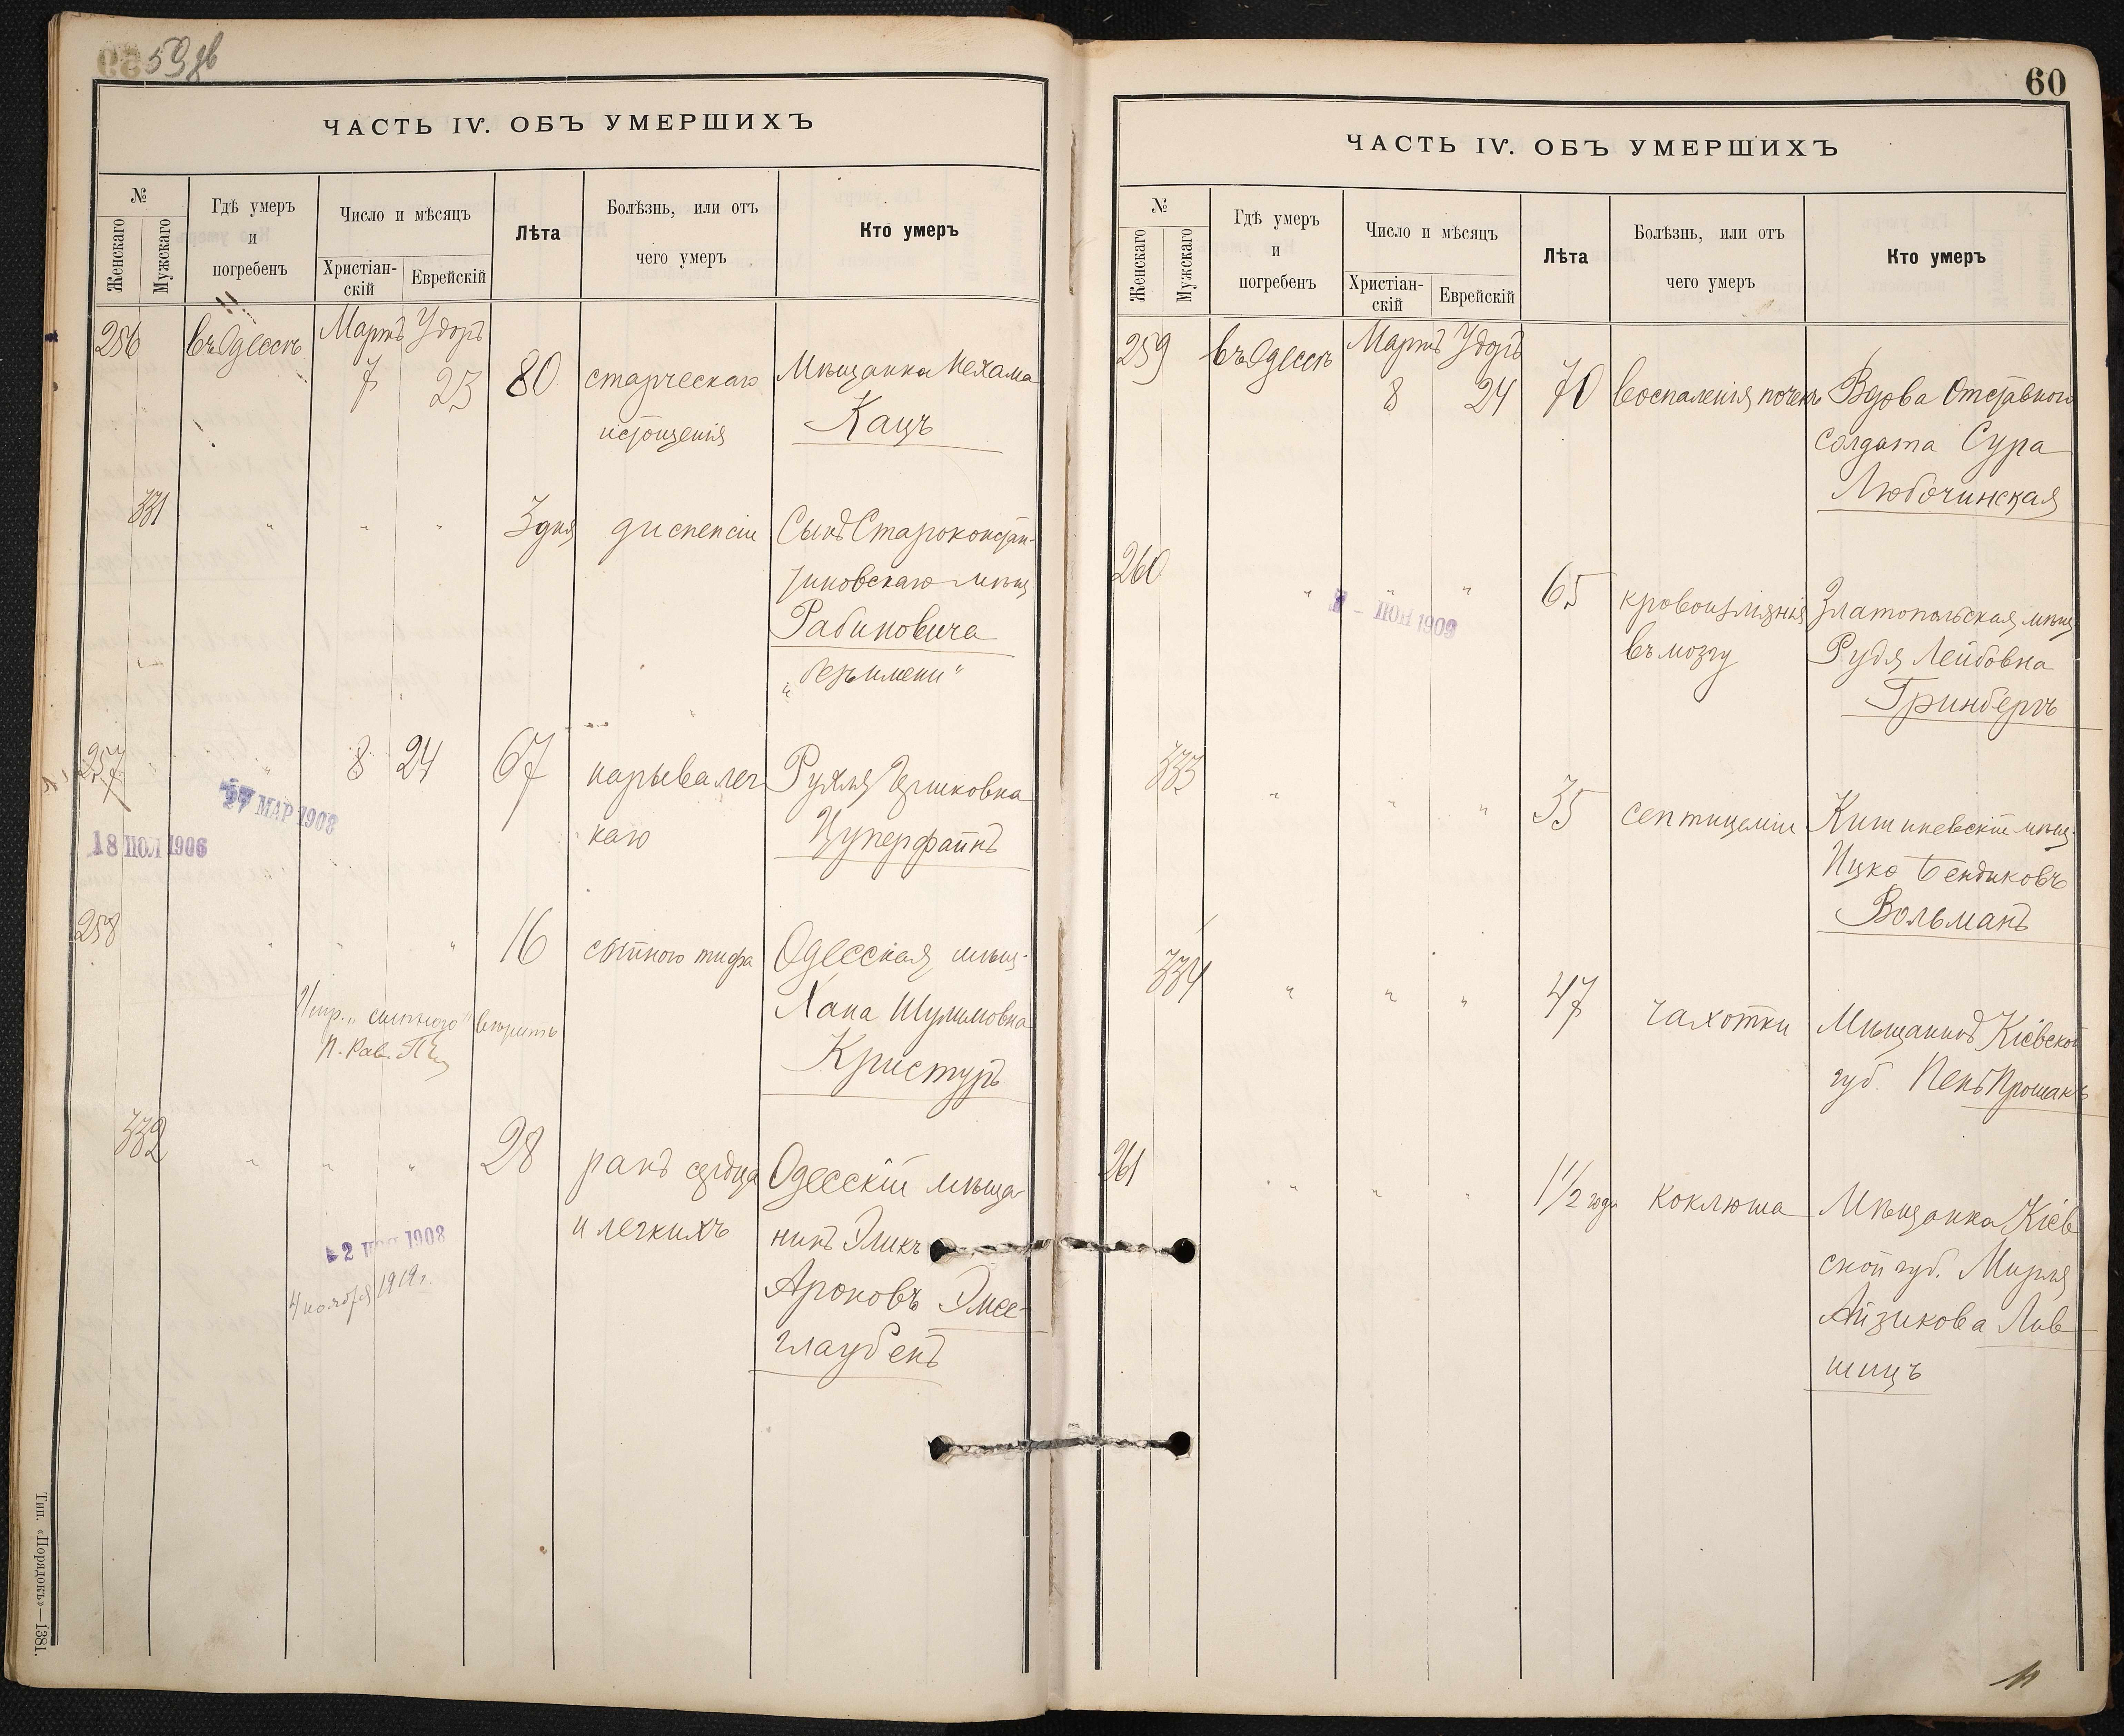 59 об
ЧАСТЬ IV. ОБЪ УМЕРШИХЪ
№
Женскаго
Мужскаго
Гдѣ умеръ
и
погребенъ
Число и мѣсяцъ
Христіан-
скій
Еврейскій
Лѣта
Болѣзнь, или отъ
чего умеръ
Кто умеръ
256 въ Одессѣ Мартъ Удоръ
7 23 80 старческаго Мѣщанка Нехама
истощенія Кацъ
331 " " " 3 дня диспепсіи Сынъ Староконстан-
тиновскаго мѣщ.
Рабиновича
"безъ имени"
257 " 8 24 67 нарыва лег Рухля Гершковна
каго Цуперфайнъ
27 МАР 1908
18 ІЮЛ 1906
258 " " " 16 сыпного тифа Одесская мѣщ.
Хана Шулимовна
Кристуръ
Испр. "сыпного" вѣрить
П. Рав.
332 " " " 28 ракъ сердца Одесскій мѣща-
и легкихъ нинъ Эликъ
Ароновъ Эмсе-
глаубенъ
2 1908
4 ноября 1919 г.
Тип. «Порядокъ»—1381.
60
ЧАСТЬ IV. ОБЪ УМЕРШИХЪ
№
Женскаго
Мужскаго
Гдѣ умеръ
и
погребенъ
Число и мѣсяцъ
Христіан-
скій
Еврейскій
Лѣта
Болѣзнь, или отъ
чего умеръ
Кто умеръ
259 въ Одессѣ Мартъ Удоръ
8 24 70 воспаленія почекъ Вдова отставного
солдата Сура
Любочинская
260 " " " 65 кровоизліянія Златопольская мѣщ
въ мозгу Рудя Лейбовна
Гринбергъ
ІЮН 1909
333 " " " 35 септицеміи Кишиневскій мѣщ.
Ицко Бендиковъ
Вольманъ
334 " " " 47 чахотки Мѣщанинъ Кіевской
губ. Пень Прошакъ
261 " " " 1 1/2 года коклюша Мѣщанка Кіев
ской губ. Мирля
Айзикова Лив
шицъ